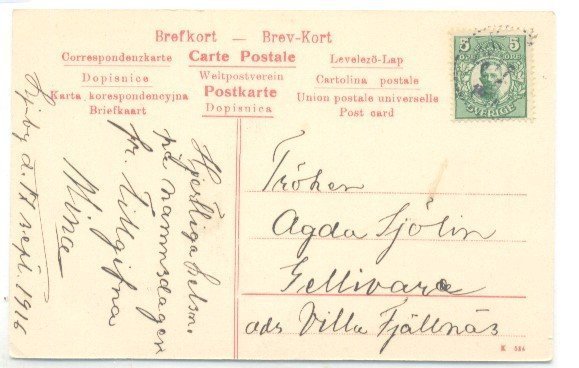 Brefkort — Brev-Kort
Correspondenzkarte Carte Postale Levelező-Lap
Dopisnice Weltpostverein Cartolina postale
Karta korespondencyjna Postkarte Union postale universelle
Briefkaart Dopisnica Post card
5 5
SVERIGE
Hjertliga
på namnsdagen
fr. Tillgifna
Mina
d. 17 sept. 1916
Fröken
Agda Sjölin
Gellivare
ads Villa Fjällnäs
K 584